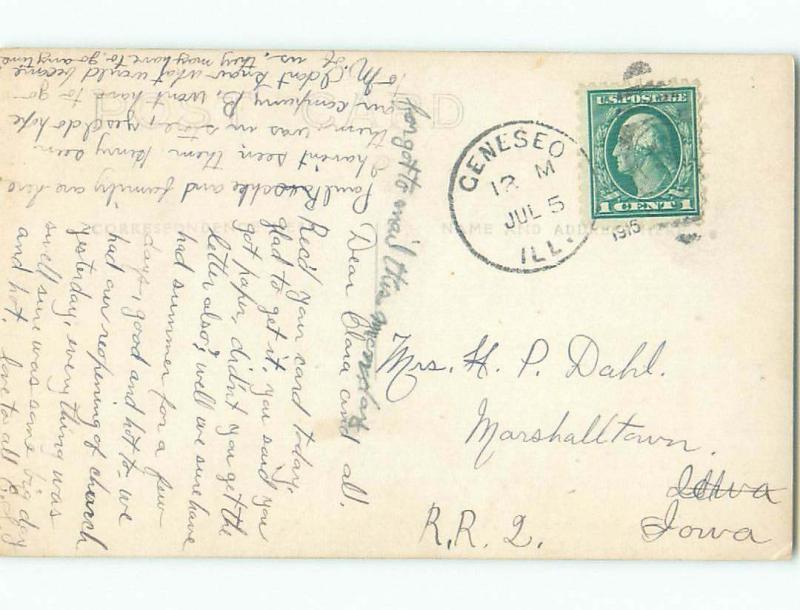 POST CARD
CORRESPONDENCE
NAME AND ADDRESS
U.S. POSTAGE
1 CENT 1
GENESEO
12 M
JUL 5
1916
ILL.
Mrs. H. P. Dahl.
Marshalltown.
Iowa
Iowa
R.R. 2.
Dear Clara and all.
Rec'd your card today,
glad to get it, you said you
got paper, didn't you get the
letter also; well we sure have
had summer for a few
days, good and hot to- we
had our reopening of church
yesterday, everything was
swell sure was some big day
and hot. love to all
Paul and family are here,
haven't seen them. Henry seen
them was in store, yes I do hope
our company B, wont have to go
to M. I don't know what would become
of us, they may have to go anytime
forgot to mail this monday